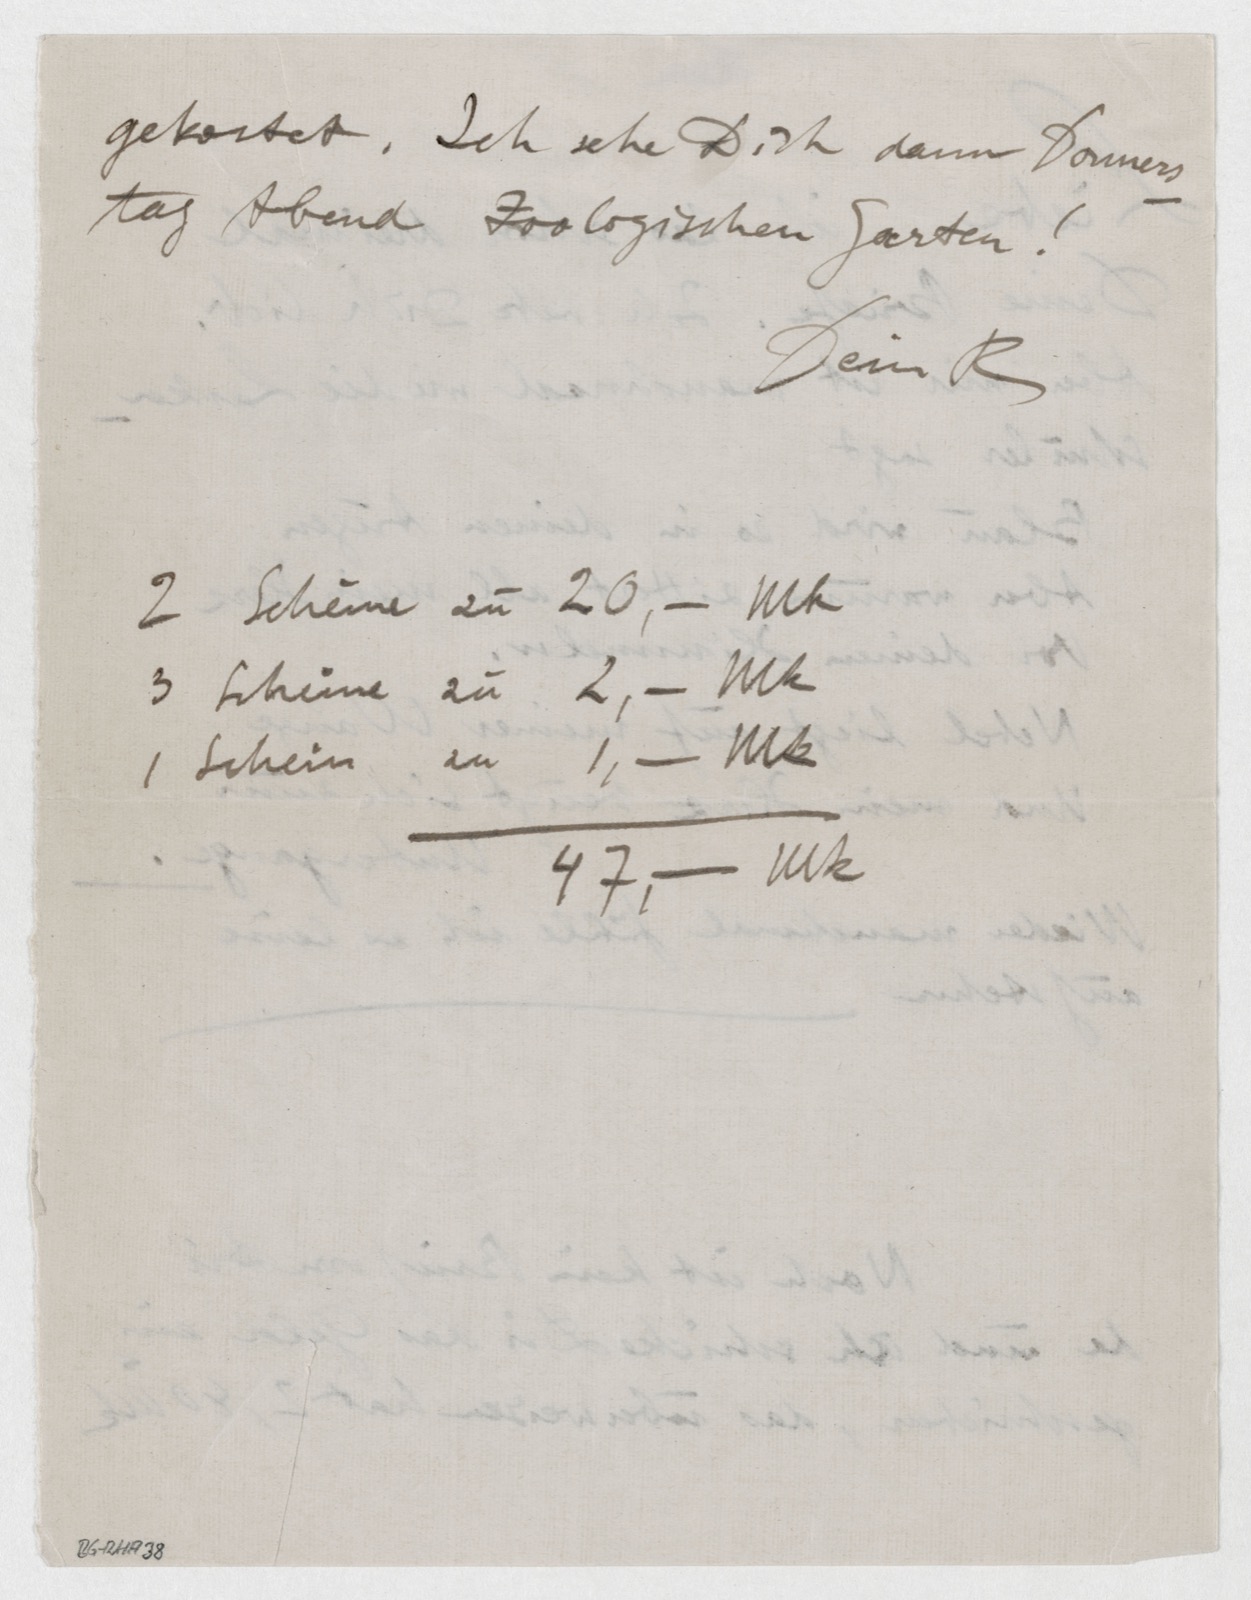 gekostet. Ich sehe Dich dann Donners
tag Abend Zoologischen Garten!
Dein R
2 Scheine zu 20,— Mk
3 Scheine zu 2,— Mk
1 Schein zu 1,— Mk
47,— Mk
38